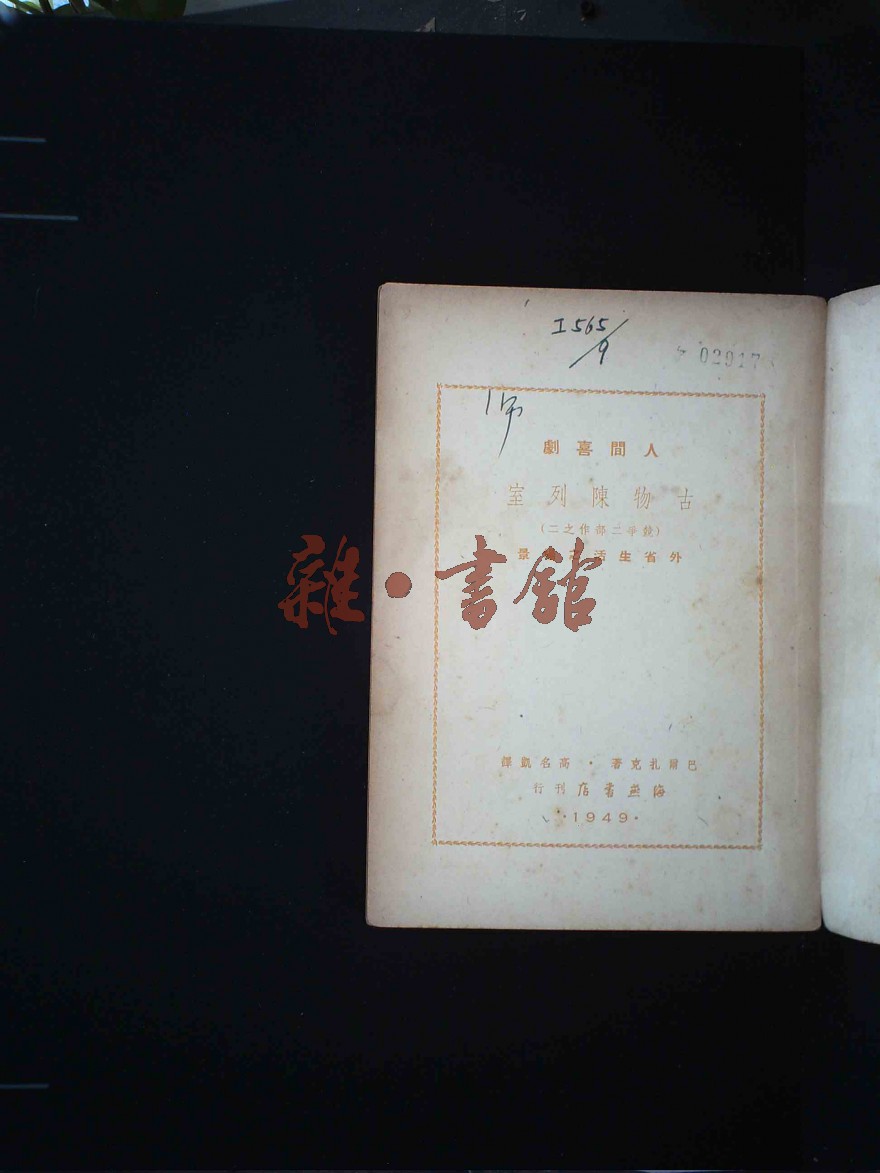 I565/9
02917
人間喜劇
古物陳列室
(競爭二部作之二)
外省生活之景
雜·書館
巴爾扎克著·高名凱譯
海燕書店刊行
·1949·